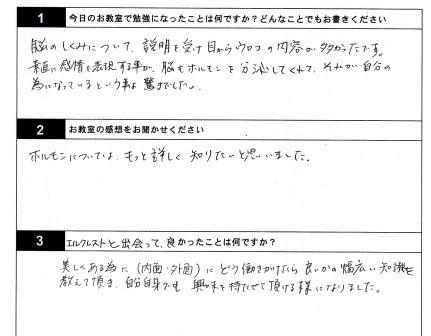 1 今日のお教室で勉強になったことは何ですか？どんなことでもお書きください
脳のしくみについて、説明を受け目からウロコの内容が多かったです。
素直に感情を表現する事が、脳もホルモンを分泌してくれて、それが自分の
為になっているという事は驚きでした。
2 お教室の感想をお聞かせください
ホルモンについては、もっと詳しく知りたいと思いました。
3 エルクレストと出会って、良かったことは何ですか？
美しくある為に(内面・外面)にどう働きかけたら良いかの幅広い知識を
教えて頂き、自分自身でも興味を持たせて頂ける様になりました。